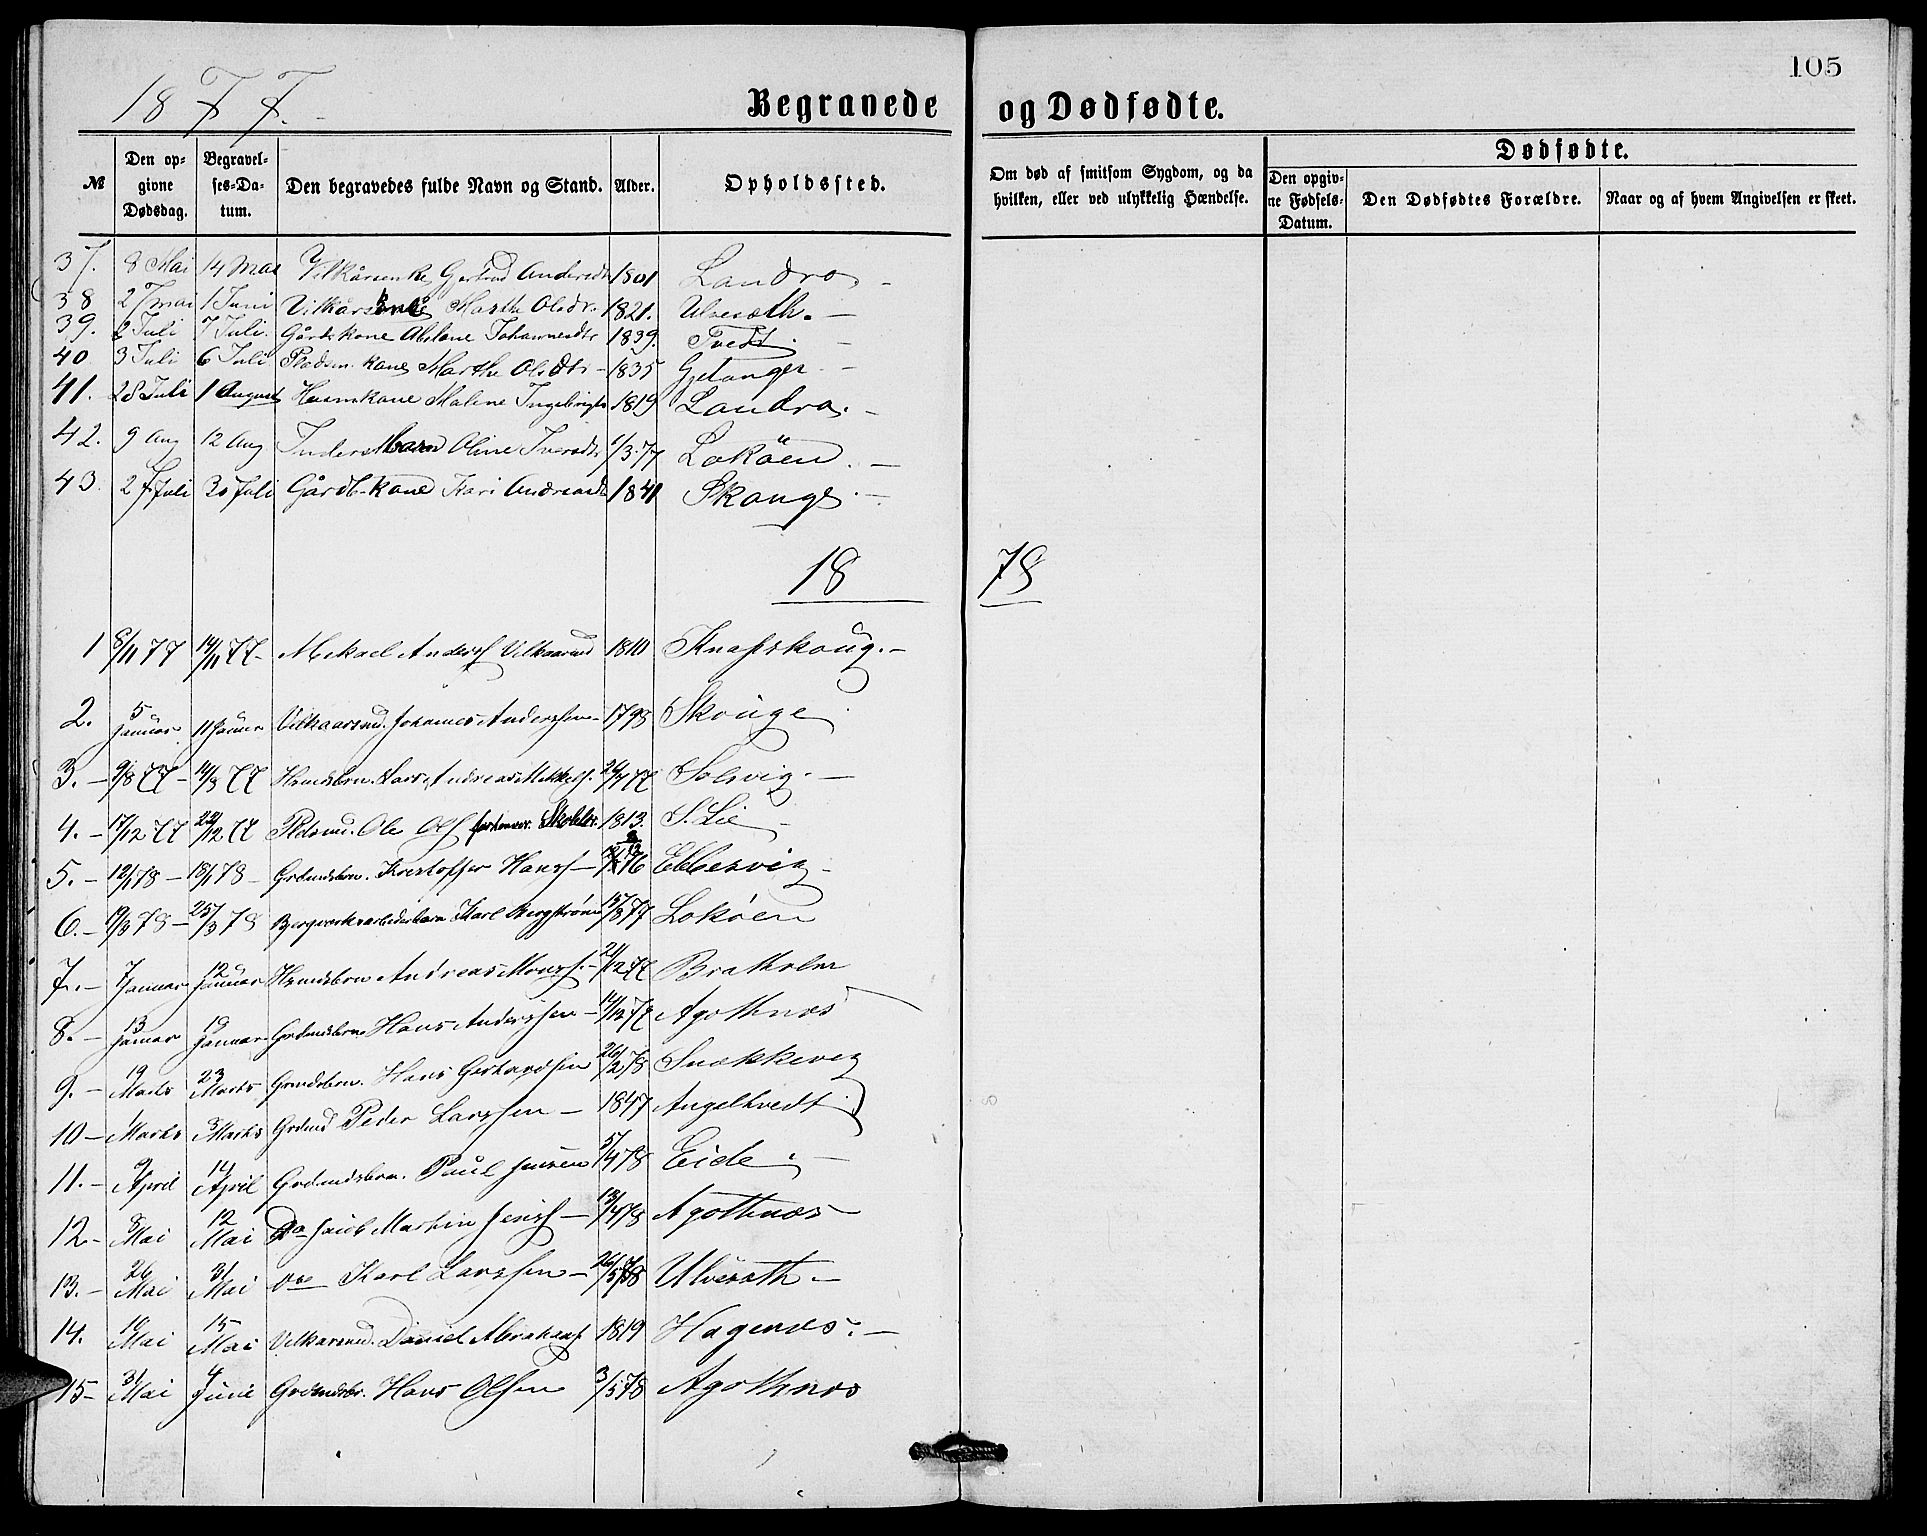 105
1877.
Begravede og Dødfødte.
№ Den opgivne Dødsdag. Begravelses-Datum. Den begravedes fulde Navn og Stand. Alder. Opholdssted. Om død af smitsom Sygdom, og da hvilken, eller ved ulykkelig Hændelse. Dødfødte. Den opgivne Fødsels-Datum. Den Dødfødtes Forældre. Naar og af hvem Angivelsen er skeet.
37. 8 Mai 14 Mai Vilkårsenke Gjertrud Andersdtr 1801 Landro
38 27 mai 1 Juni Vilkårs Marthe Olsdr. 1821. Ulveseth. —
39. 2 Juli 7 Juli. Gårdskone Abelone Johannesdtr 1839. Tvedt. —
40 3 Juli 6 Juli Pladsm. kone Marthe Olsdtr - 1835 Gjetanger —
41. 28 Juli 1 August Huusmkone Malene Ingebrigts 1819 Landro. —
42. 9 Aug 12 Aug Inderstbarn Oline Iversdtr 1/3.77 Lokøen. —
43. 27 Juli 30 Juli Gårdb-kone Kari Andreasdtr 1841 Skouge. —
1878
1 8/11 77 14/11 77- Mikael Anders Vilkaarsmd 1810 Knapskoug. —
2. 5 Januar 11 Januar Vilkaarsmd. Johannes Anderssen- 1798 Skouge
3. - 9/8 77 - 14/8 77 Hsmdsbrn. Lars Andreas Mikkels. 24/7 77 Solsvig. —
4. - 17/12 77 22/12 77 Pldsmd. Ole Ols forhenvr. Skolelr. 1813. S. Lie -
5. - 12/1 78 - 18/1 78 - Grdmdsbrn. Kristoffer Hanss - 76 Ebbesvig -
6. - 19/3 78 - 25/3 78 Bergværksarbeiderbarn Karl Bergstrøm 15/8 77 Lokøen
7. - 7 Januar 12 Januar Hsmdsbrn Andreas Monss. - 21/12 77 Bratholm
8. - 13 Januar 19 Januar Grdmdsbrn Hans Anderssen - 14/12 77 Agothnæs
9. - 19 Marts 23 Marts Grmdsbrn. Hans Gerhardsen 26/2 78 Snekkevig
10 - Marts 3 Marts Grdmd Peder Larssen - 1847 Angeltvedt
11. - 9 April 14 April Grdmdsbrn. Paul Jensen 5/4 78 Eide. —
12. - 8 Mai 12 Mai Do Jacob Martin Jenss - 13/4 78 Agothnæs -
13. - 26 Mai 31 Mai Do Karl Larssen - 26/5 78 Ulveseth. —
14. 10 Mai 15 Mai Vilkarsmd. Daniel Abrahams 1819 Hagenæs. —
15 - 31 Mai 4 Juni Grdmdsbr. Hans Olsen 3/5 78 Agothnæs